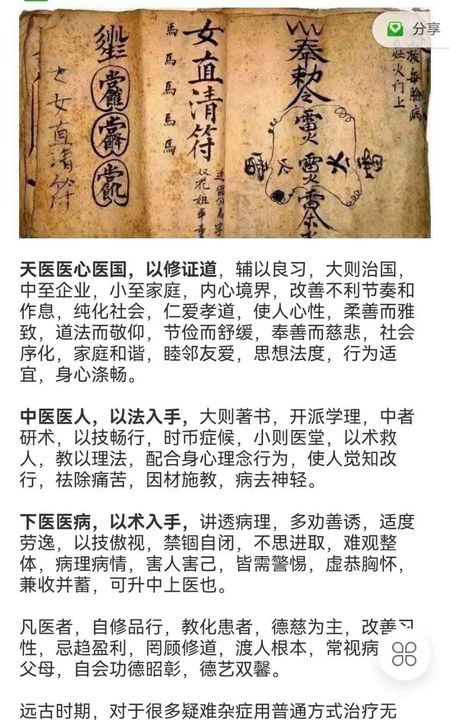 分享
女直清符
馬
馬
馬
馬
馬
奉勅令
天医医心医国，以修证道，辅以良习，大则治国，
中至企业，小至家庭，内心境界，改善不利节奏和
作息，纯化社会，仁爱孝道，使人心性，柔善而雅
致，道法而敬仰，节俭而舒缓，奉善而慈悲，社会
序化，家庭和谐，睦邻友爱，思想法度，行为适
宜，身心涤畅。
中医医人，以法入手，大则著书，开派学理，中者
研术，以技畅行，时币症候，小则医堂，以术救
人，教以理法，配合身心理念行为，使人觉知改
行，祛除痛苦，因材施教，病去神轻。
下医医病，以术入手，讲透病理，多劝善诱，适度
劳逸，以技傲视，禁锢自闭，不思进取，难观整
体，病理病情，害人害己，皆需警惕，虚恭胸怀，
兼收并蓄，可升中上医也。
凡医者，自修品行，教化患者，德慈为主，改善习
性，忌趋盈利，罔顾修道，渡人根本，常视病
父母，自会功德昭彰，德艺双馨。
远古时期，对于很多疑难杂症用普通方式治疗无